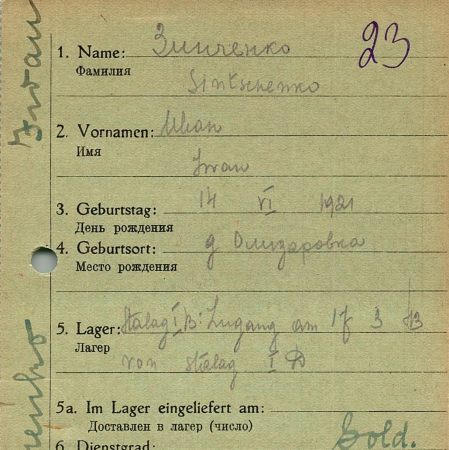 23
1. Name: Зинченко
Фамилия
Sintschenko
2. Vornamen: Иван
Имя
Iwan
3. Geburtstag: 14 VI 1921
День рождения
4. Geburtsort: д Олизаровка
Место рождения
5. Lager: Stalag I B: Zugang am 17 3 43
Лагер
von Stalag I D
5a. Im Lager eingeliefert am:
Доставлен в лагер (число)
6. Dienstgrad: Sold.
Iwan